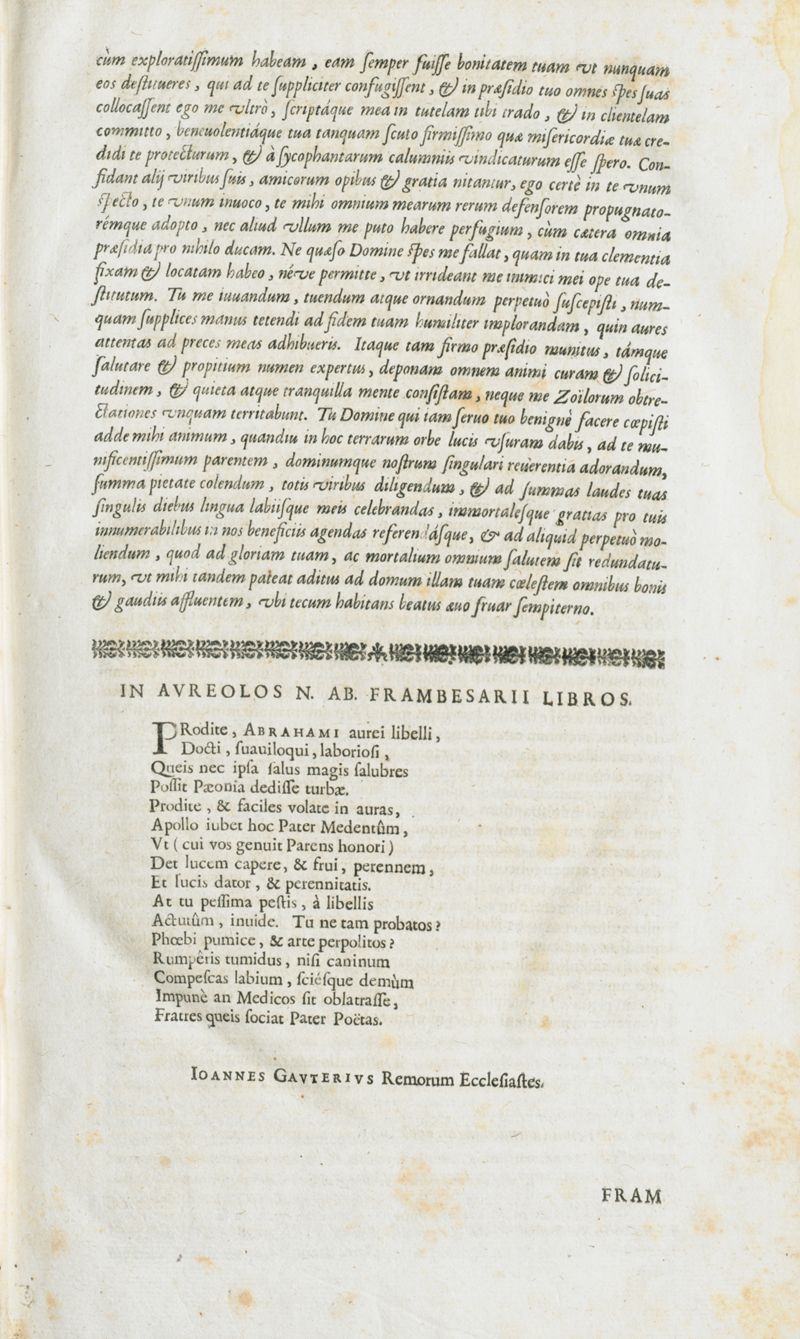 cùm exploratissimum habeam, eam semper fuisse bonitatem tuam vt nunquam
eos destitueres, qui ad te suppliciter confugissent, & in præsidio tuo omnes spes suas
collocassent ego me vltrò, scriptáque mea in tutelam tibi trado, & in clientelam
committo, beneuolentiáque tua tanquam scuto firmissimo quæ misericordiæ tuæ cre-
didi te protecturum, & à sycophantarum calumniis vindicaturum esse spero. Con-
fidant alij viribus suis, amicorum opibus & gratia nitantur, ego certè in te vnum
specto, te vnum inuoco, te mihi omnium mearum rerum defensorem propugnato-
rémque adopto, nec aliud vllum me puto habere perfugium, cùm cætera omnia
præsidia pro nihilo ducam. Ne quæso Domine spes me fallat, quam in tua clementia
fixam & locatam habeo, néve permitte, vt irrideant me inimici mei ope tua de-
stitutum. Tu me iuuandum, tuendum atque ornandum perpetuò suscepisti, num-
quam supplices manus tetendi ad fidem tuam humiliter implorandam, quin aures
attentas ad preces meas adhibueris. Itaque tam firmo præsidio munitus, támque
salutare & propitium numen expertus, deponam omnem animi curam & solici-
tudinem, & quieta atque tranquilla mente consistam, neque me Zoilorum obtre-
ctationes vnquam territabunt. Tu Domine qui iam seruo tuo benignè facere cœpisti
adde mihi animum, quandiu in hoc terrarum orbe lucis vsuram dabis, ad te mu-
nificentissimum parentem, dominumque nostrum singulari reuerentia adorandum,
summa pietate colendum, totis viribus diligendum, & ad summas laudes tuas
singulis diebus lingua labiisque meis celebrandas, immortalesque gratias pro tuis
innumerabilibus in nos beneficiis agendas referendásque, & ad aliquid perpetuò mo-
liendum, quod ad gloriam tuam, ac mortalium omnium salutem sit redundatu-
rum, vt mihi tandem pateat aditus ad domum illam tuam cœlestem omnibus bonis
& gaudiis affluentem, vbi tecum habitans beatus æuo fruar sempiterno.
IN AVREOLOS N. AB. FRAMBESARII LIBROS.
PRodite, ABRAHAMI aurei libelli,
Docti, suauiloqui, laboriosi,
Queis nec ipsa salus magis salubres
Possit Pæonia dedisse turbæ.
Prodite, & faciles volate in auras,
Apollo iubet hoc Pater Medentûm,
Vt (cui vos genuit Parens honori)
Det lucem capere, & frui, perennem,
Et lucis dator, & perennitatis.
At tu pessima pestis, à libellis
Actutûm, inuide. Tu ne tam probatos?
Phœbi pumice, & arte perpolitos?
Rumpêris tumidus, nisi caninum
Compescas labium, sciésque demùm
Impunè an Medicos sit oblatrasse,
Fratres queis sociat Pater Poëtas.
IOANNES GAVTERIVS Remorum Ecclesiastes.
FRAM